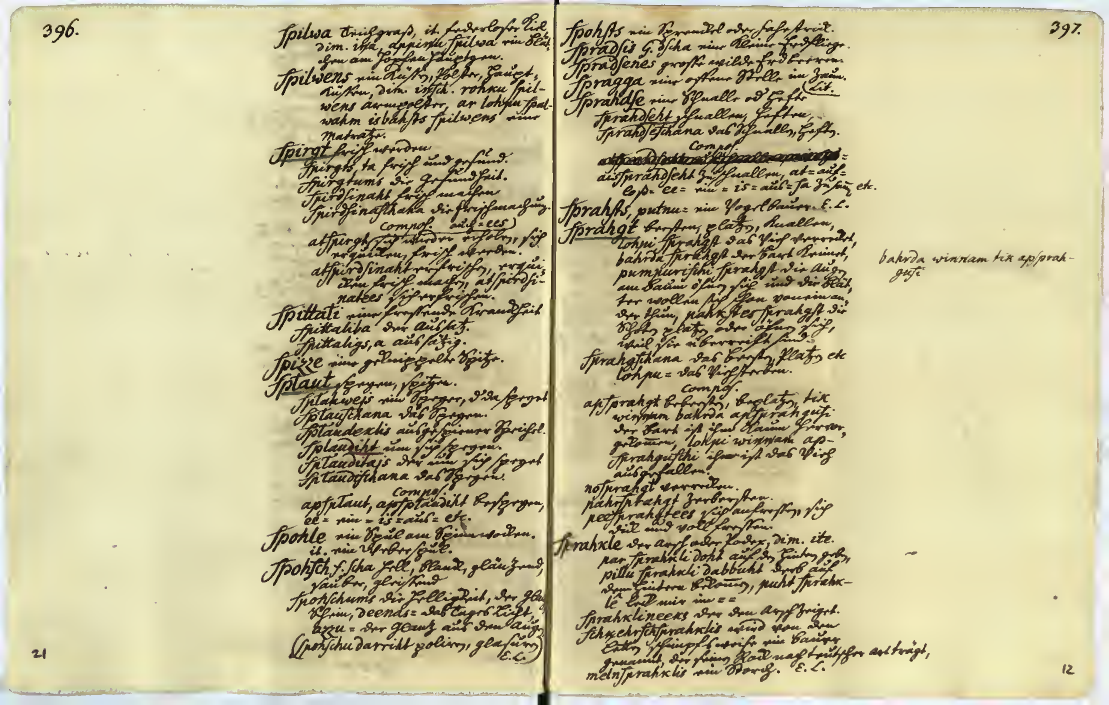 396.
Spilwa Teichgraß, it. federloser Kiel
dim. iṫṫa, appinu spilwa ein Blüt
chen am Hopfen Häuptgen.
Spilwens ein Küßen, Polster, Haupt-
Küßen, dim. insch. rohku spil-
wens armpolster, ar lohpu spal-
wahm isbahsts spilwens eine
Matratze.
Spirgt frisch werden
Spirgts, ta frisch und gesund.
Spirgtums die Gesundheit.
Spirdsinaht frisch machen
Spirdsinaschana die frischmachung.
Compos.
atspirgt, sich wieder erholen, sich
erquicken, frisch werden.
atspirdsinaht erfrischen, erqui-
cken frisch machen, atspirdsi-
natees sich erfrischen.
Spittali eine fressende Kranckheit
Spittaliba der Aussatz.
Spittaligs, a aussätzig.
Spizze eine geknippelte Spitze.
Splaut speyen, spützen.
Splahwejs ein Speyer, d. da speyet
Splauschana das Speyen.
Splaudeklis ausgespiener Speichel.
Splaudiht um sich speyen.
Splauditajs der um sich speyet
Splaudischana das Speyen.
Compos.
apsplaut, apsplaudiht bespeyen,
ee= ein= is=aus= etc.
Spohle ein Spul am Spinnwocken.
it. ein Weberspul.
Spohsch, f. scha hell, blanck, gläntzend,
sauber, gleissend
Spohschums die Helligkeit, der
Schein, deenas= das Tages Licht,
azzu= der Glantz aus den Augen
(Spohschu darriht poliren, glasuren)
E. L.
21
397.
Spohsts ein Sprenckel oder Fahlstrick.
Spradsis G. dscha eine kleine Erdfliege.
Spradsenes große wilde Erdbeeren.
Spragga eine offene Stelle im Zaun.
Lit.
Sprahdse eine Schnalle od. Hefte
Sprahdseht schnallen, heften,
Sprahdseschana das Schnallen, Heften.
Compos.
aissprahdseht zuschnallen, at=auf=
loß= ee= ein= is=aus= sa zusam̅ etc.
Sprahsts, putnu= ein Vogelbauer. E. L.
Sprahgt bersten, platzen, knallen,
lohpi sprahgst das Vieh verrecket,
bahrda sprahgst der Bart keimet,
pumpurischi sprahgst die Augen
am Baum öfnen sich und die Blät-
ter wollen sich schon von einan-
der thun, pahkstes sprahgst die
Schoten platzen oder öfnen sich,
weil sie überreiff sind.
Sprahgschana das Bersten, Platzen etc
lohpu= das Viehsterben.
Compos.
apsprahgt bebersten, beplatzen, tik
winnam bahrda apsprahgusi
der Bart ist ihm kaum hervor
gekommen, lohpi winnam ap-
sprahguschi ihm ist das Vieh
ausgefallen
nosprahgt verrecken.
pahrsprahgt zerbersten.
peesprahgtees sich anfressen, sich
dick und voll fressen.
Sprahkle der Arsch oder Podex, dim. ite.
par sprahkli doht auf den Hinten geben,
pillu sprahkli dabbuht derb auf
dem Hintern bekommen, puht sprahk-
lê leck mir im = =
Sprahklineeks der den Arsch zeiget.
Schkehrschsprahklis wird von den
Letten schimpfsweise ein Bauer
genannt, der seinen Rock nach teutscher art trägt,
melnsprahklis ein Storch. E. L.
bahrda winnam tik apsprah-
gusi
12